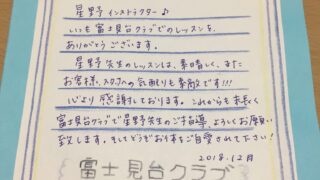 星野 インストラクター♪
いつも富士見台クラブでのレッスンを
ありがとうございます。
星野先生のレッスンは、素晴しく、また
お客様、スタッフへの気配りも素敵です!!!
心より感謝しております。これからも末長く
富士見台クラブで星野先生のご指導よろしくお願い
致します。そしてどうぞお体をご自愛されて下さい!
2018.12月
富士見台クラブ